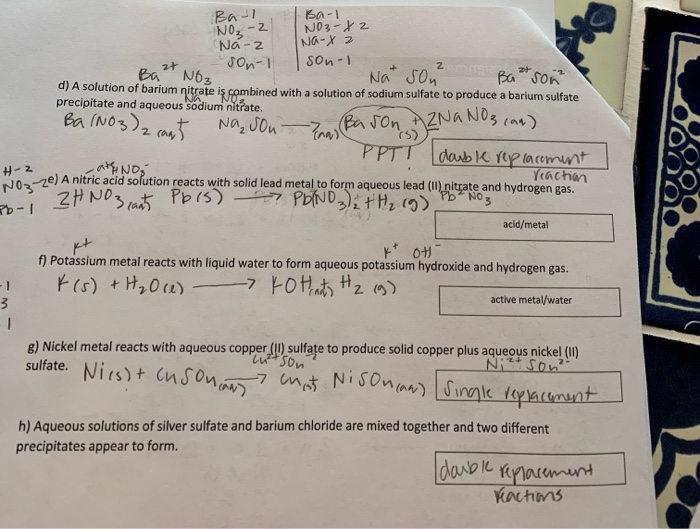 Ba-1 Ba-1
NO3-2 NO3-X 2
Na-2 Na-X 2
SO4-1 SO4-1
Ba 2+ NO3 Na + SO4 2 Ba 2+ SO4 -2
d) A solution of barium nitrate is combined with a solution of sodium sulfate to produce a barium sulfate
Na NO3
precipitate and aqueous sodium nitrate.
Ba(NO3)2 (aq) + Na2SO4 (aq) → BaSO4 (s) + 2NaNO3 (aq)
PPT! double replacement
reaction
H-2
NO3-2
Pb-1
HNO3-
e) A nitric acid solution reacts with solid lead metal to form aqueous lead (II) nitrate and hydrogen gas.
Pb NO3
2HNO3 (aq) + Pb(s) → Pb(NO3)2 + H2 (g)
acid/metal
K+ K+ OH-
f) Potassium metal reacts with liquid water to form aqueous potassium hydroxide and hydrogen gas.
K(s) + H2O(l) → KOH(aq) + H2 (g)
1
3
1
active metal/water
g) Nickel metal reacts with aqueous copper (II) sulfate to produce solid copper plus aqueous nickel (II)
Cu2+ SO4-2 Ni2+ SO4 2-
sulfate.
Ni(s) + CuSO4 (aq) → Cu(s) + NiSO4 (aq) Single replacement
h) Aqueous solutions of silver sulfate and barium chloride are mixed together and two different
precipitates appear to form.
double replacement
reactions